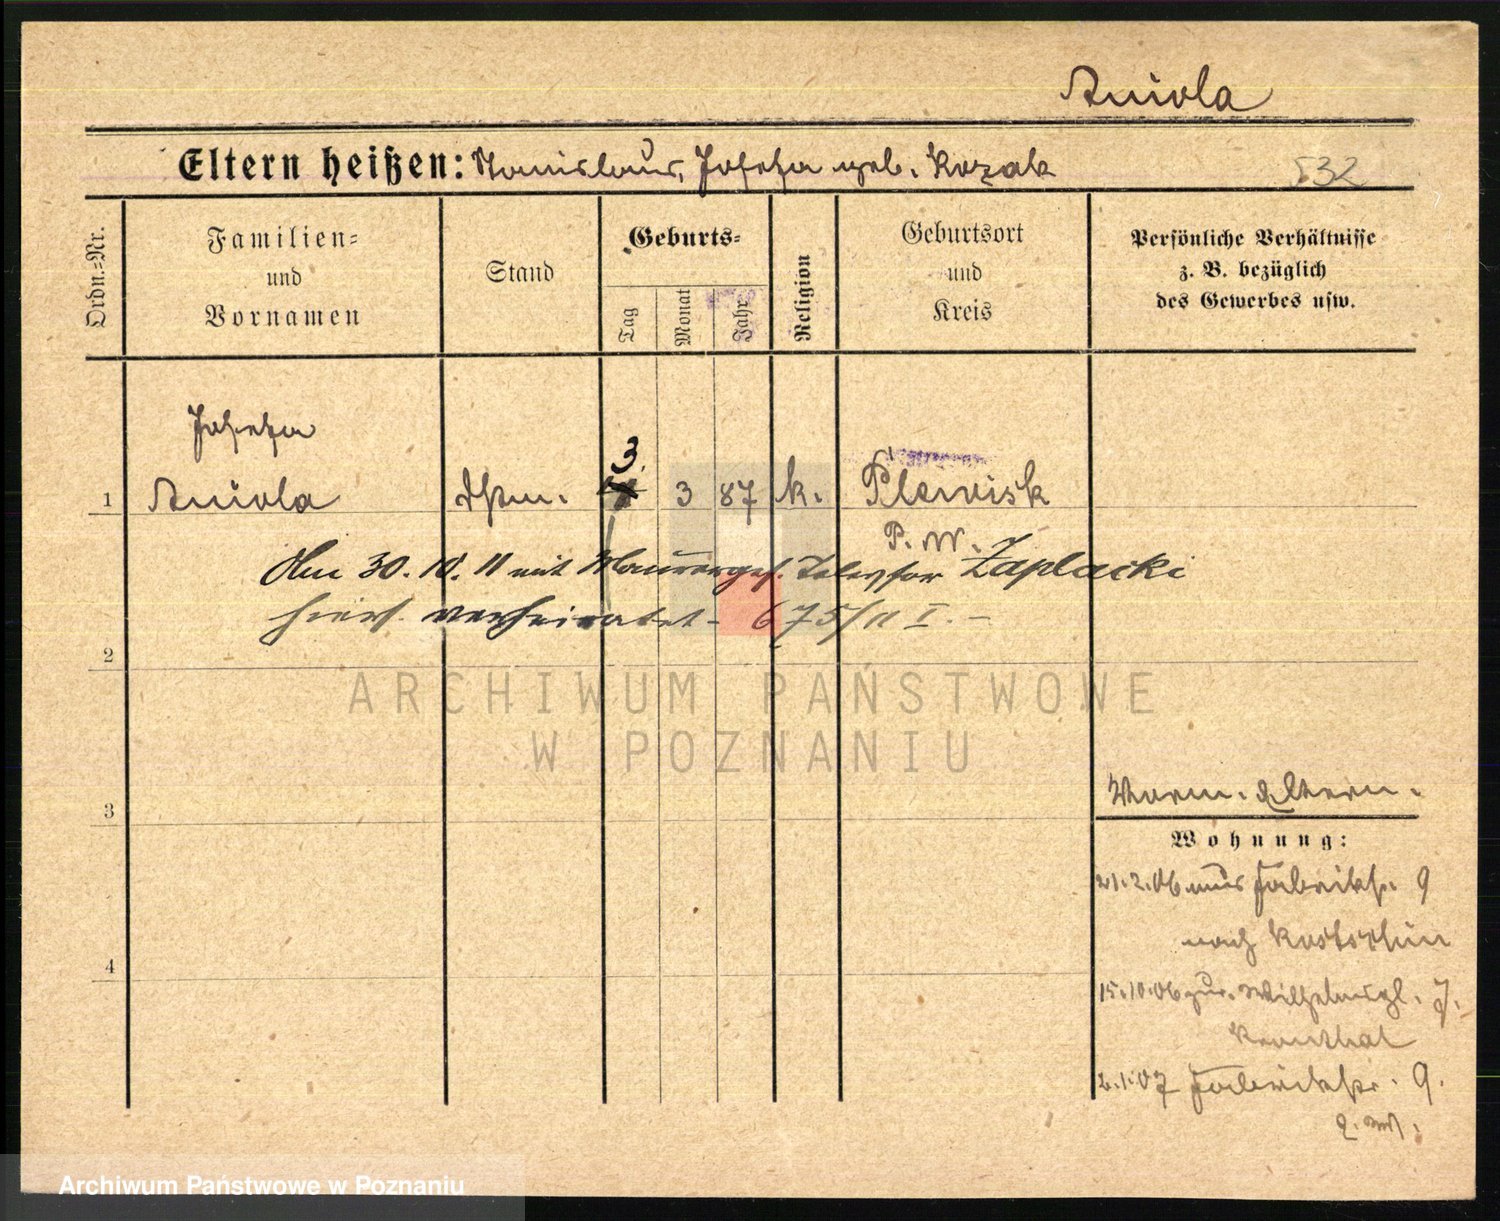 Aniola
Eltern heißen: Stanislaus, Josefa geb. Kozak
532
Ordn.=Nr.
Familien=
und
Vornamen
Stand
Geburts=
Tag
Monat
Jahr
Religion
Geburtsort
und
Kreis
Persönliche Verhältnisse
z. B. bezüglich
des Gewerbes usw.
Josefa
3.
1 Aniola 3 87 k. Plewisk
P. W.
Am 30. 10. 11 mit Maurerges. Telesfor Zaplacki
hiers. verheiratet - 675/11 I. -
2
ARCHIWUM PAŃSTWOWE
W POZNANIU
3
4
Eltern.
Wohnung:
21.2.06 aus Fabrikstr. 9
nach
15.10.06 zur. Wilhelmspl. 7.
Kronthal
2.1.07 Fabrikstr. 9.
Archiwum Państwowe w Poznaniu